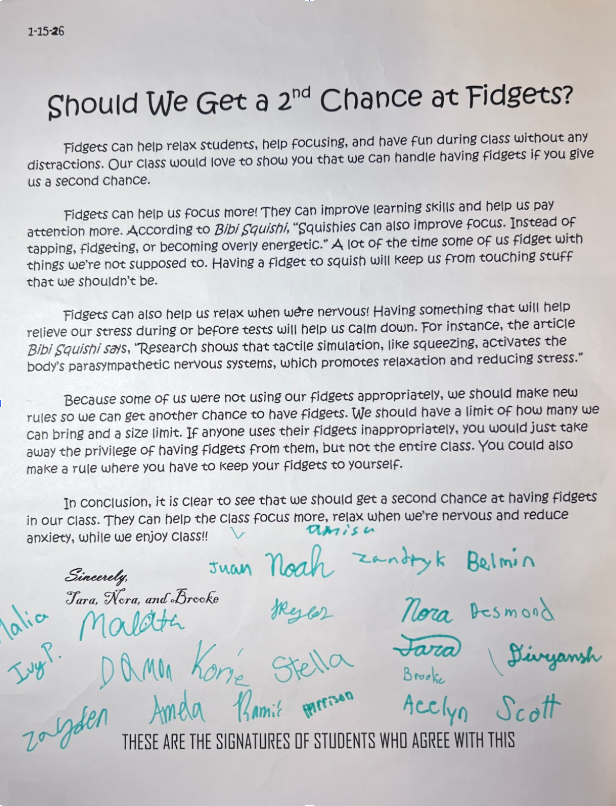 1-15-26
Should We Get a 2nd Chance at Fidgets?
Fidgets can help relax students, help focusing, and have fun during class without any
distractions. Our class would love to show you that we can handle having fidgets if you give
us a second chance.
Fidgets can help us focus more! They can improve learning skills and help us pay
attention more. According to Bibi Squishi, "Squishies can also improve focus. Instead of
tapping, fidgeting, or becoming overly energetic." A lot of the time some of us fidget with
things we're not supposed to. Having a fidget to squish will keep us from touching stuff
that we shouldn't be.
Fidgets can also help us relax when we're nervous! Having something that will help
relieve our stress during or before tests will help us calm down. For instance, the article
Bibi Squishi says, "Research shows that tactile simulation, like squeezing, activates the
body's parasympathetic nervous systems, which promotes relaxation and reducing stress."
Because some of us were not using our fidgets appropriately, we should make new
rules so we can get another chance to have fidgets. We should have a limit of how many we
can bring and a size limit. If anyone uses their fidgets inappropriately, you would just take
away the privilege of having fidgets from them, but not the entire class. You could also
make a rule where you have to keep your fidgets to yourself.
In conclusion, it is clear to see that we should get a second chance at having fidgets
in our class. They can help the class focus more, relax when we're nervous and reduce
anxiety, while we enjoy class!!
Sincerely,
Tara, Nora, and Brooke
Juan Noah Zandryk Belmin
Nora Desmond
Ivy P. Damon Korie Stella Tara Divyansh
Brooke
Zayden Amela Ramis Harrison Acelyn Scott
THESE ARE THE SIGNATURES OF STUDENTS WHO AGREE WITH THIS